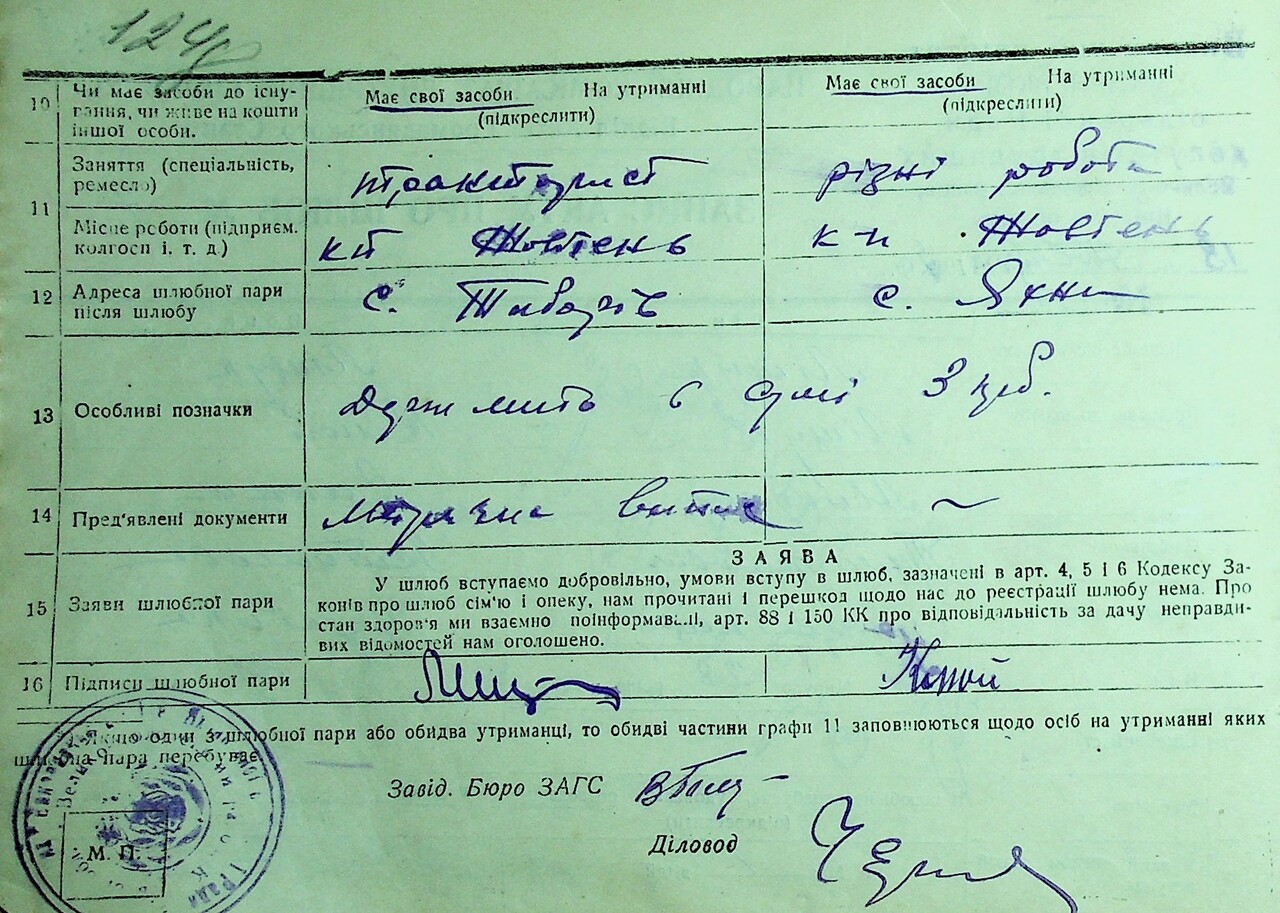 124
10 Чи має засоби до існу-
вання, чи живе на кошти
іншої особи.
Має свої засоби На утриманні
(підкреслити)
Має свої засоби На утриманні
(підкреслити)
11 Заняття (спеціальність,
ремесло)
тракторист
різні робота
Місце роботи (підприєм.
колгосп і. т. д.)
кп Жовтень
к-п Жовтень
12 Адреса шлюбної пари
після шлюбу
с.
с. Яхни
13 Особливі позначки
в сумі 3 крб.
14 Пред'явлені документи
Метрична
15 Заяви шлюбної пари
ЗАЯВА
У шлюб вступаємо добровільно, умови вступу в шлюб, зазначені в арт. 4, 5 і 6 Кодексу За-
конів про шлюб сім'ю і опеку, нам прочитані і перешкод щодо нас до реєстрації шлюбу нема. Про
стан здоров'я ми взаємно поінформавалі, арт. 88 і 150 КК про відповідальність за дачу неправди-
вих відомостей нам оголошено.
16 Підписи шлюбної пари
Якщо один з шлюбної пари або обидва утриманці, то обидві частини графи 11 заповнюються щодо осіб на утриманні яких
шлюбна пара перебуває.
Завід. Бюро ЗАГС
Діловод
М. П.